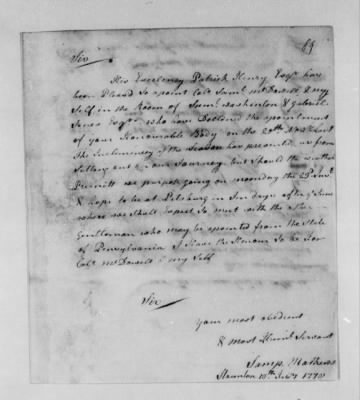 Sir
His Excelency Patrick Henry Esqr. have
been Pleasd to apoint Colo. Saml. McDowell & my
Self in the Room of Saml. Washinton & Gabriel
Jones Esqrs. who have Declined the apointment
of your Honourable Body on the 20th
The Inclemency of the Season has prevented us from
Setting out on our Journey, but Should the weather
Permitt we purpose going on monday the
& hope to be at Pitsburg in days after, Time
where we Shall Expect to meet with the other
Gentleman who may be apointed from the State
of Pensylvania I Have the Honour to be for
Colo. McDowell & my Self
Sir
your most obedient
& most Humle. Servant
Samp. Mathews
Staunton 1778